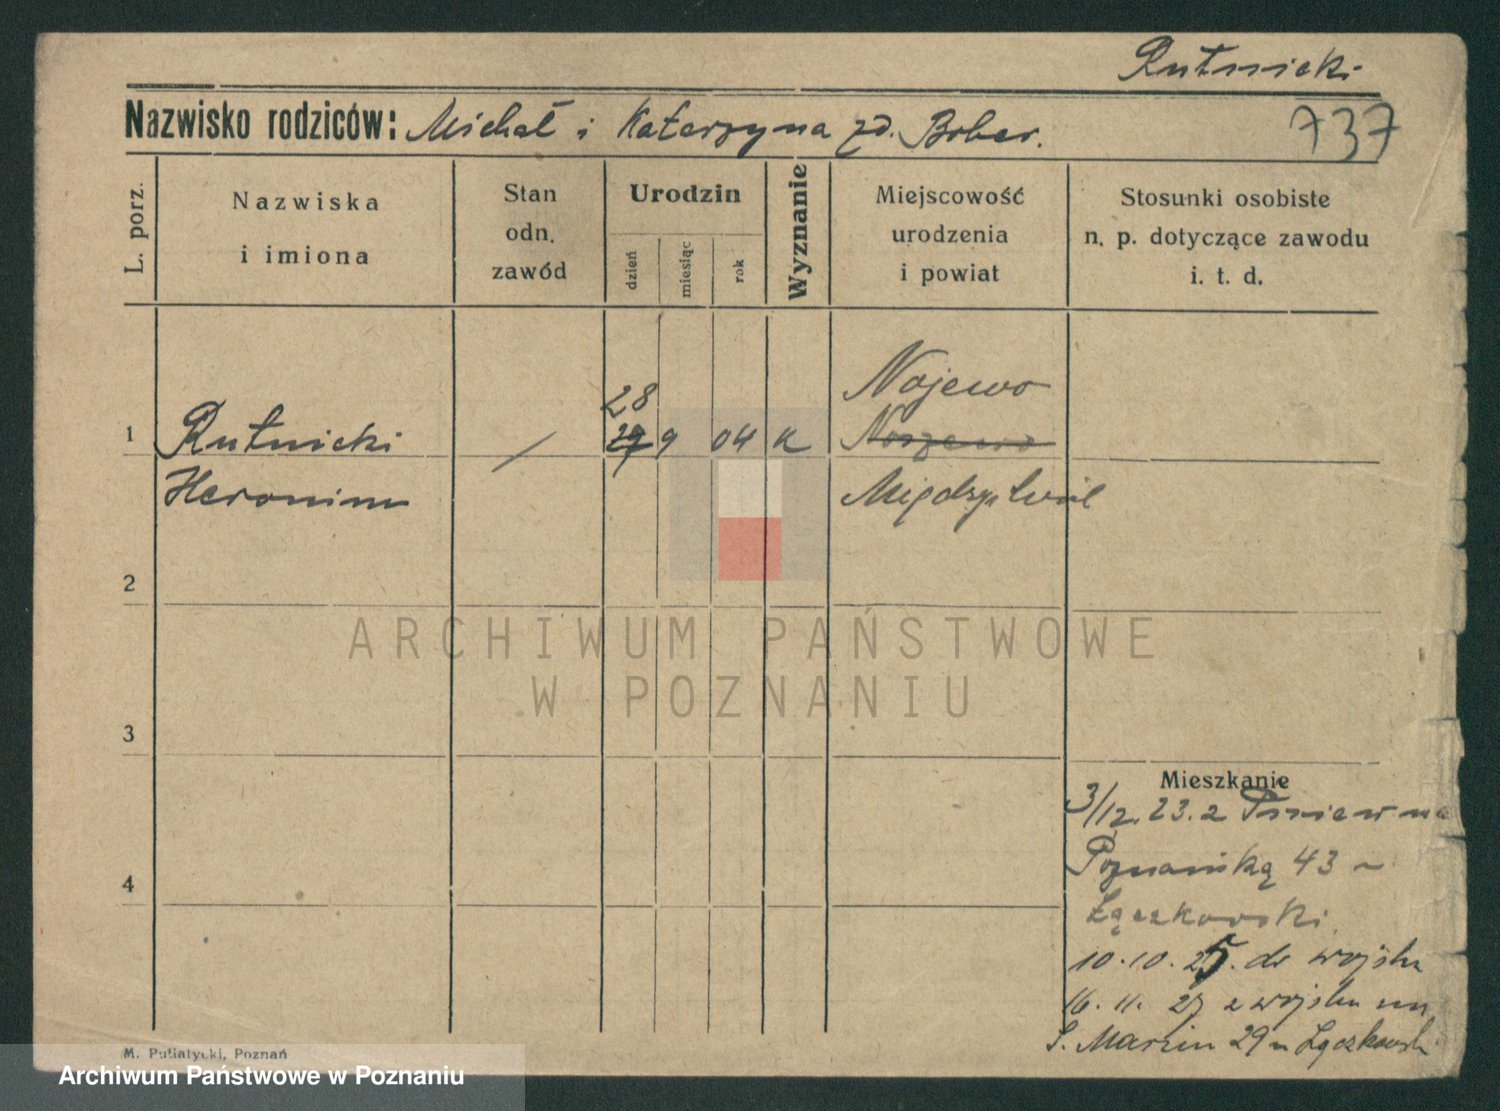 Rutnicki
Nazwisko rodziców: Michał i Katarzyna zd. Bober.
737
L. porz.
Nazwiska
i imiona
Stan
odn.
zawód
Urodzin
dzień
miesiąc
rok
Wyznanie
Miejscowość
urodzenia
i powiat
Stosunki osobiste
n. p. dotyczące zawodu
i. t. d.
28
Nojewo
1 Rutnicki / 29 9 04 K
Heronim
Międzychód
2
ARCHIWUM PAŃSTWOWE
W POZNANIU
3
Mieszkanie
3/12. 23. z na
Poznańską 43
Łączkowski
4
10. 10. 25. do wojska
16. 11. 27 z wojska
S. Marcin 29 u Łączkowsk
M. Putiatycki, Poznań
Archiwum Państwowe w Poznaniu